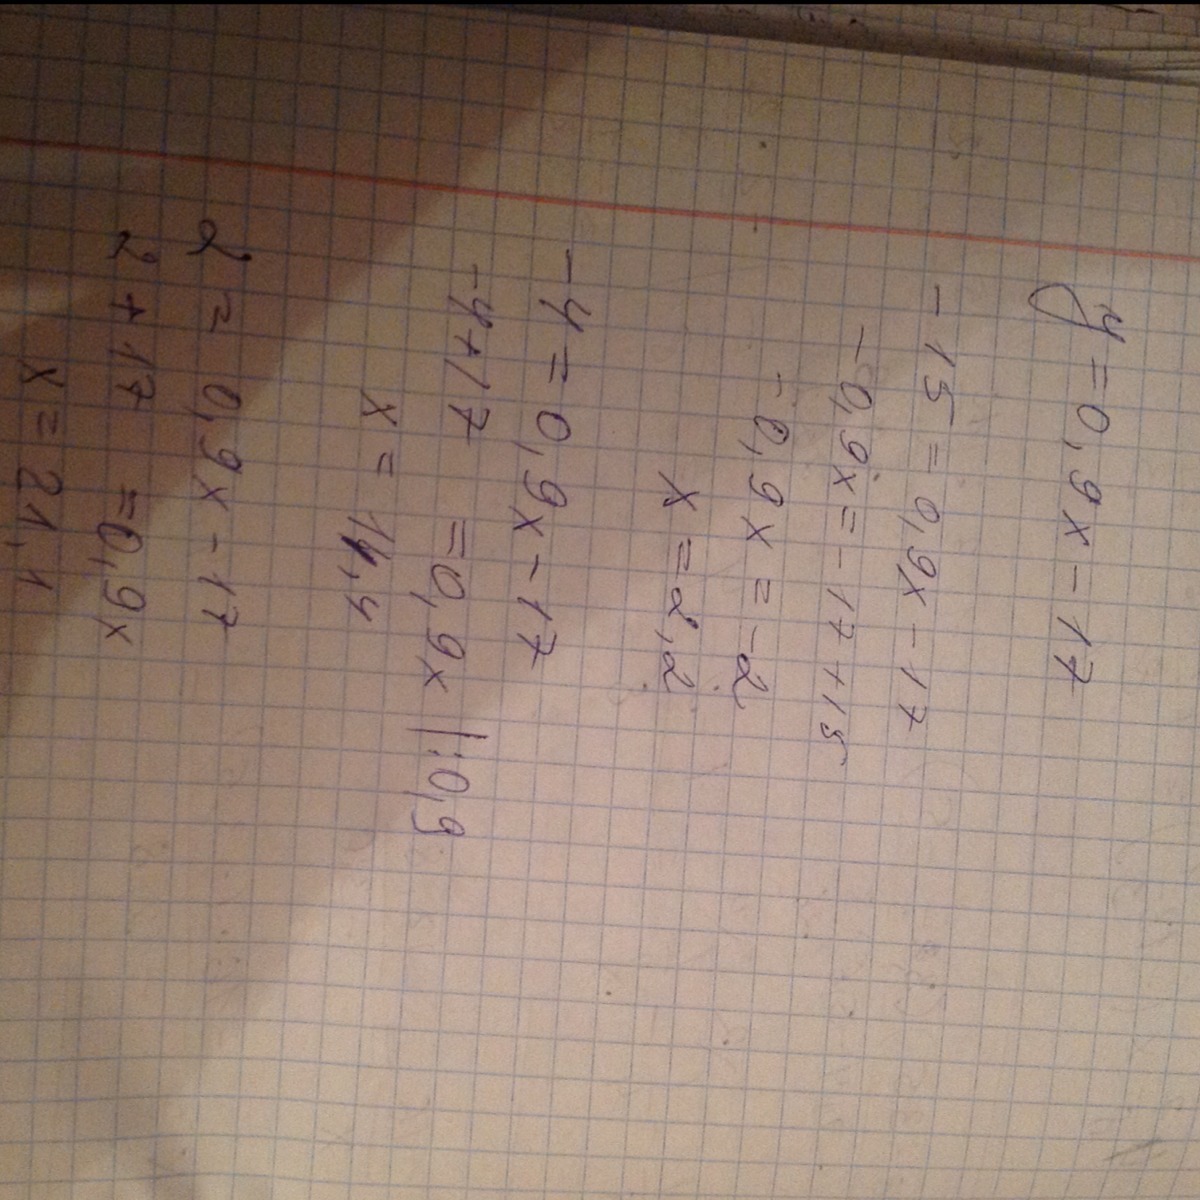 y = 0,9x - 17
- 15 = 0,9x - 17
- 0,9x = - 17 + 15
- 0,9x = -2
x = 2,2
- 4 = 0,9x - 17
- 4 + 17 = 0,9x |:0,9
x = 14,4
2 = 0,9x - 17
2 + 17 = 0,9x
x = 21,1